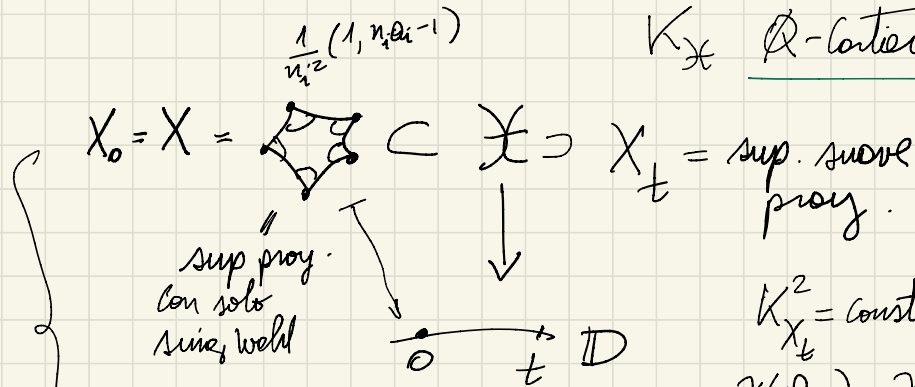 1/n_i^2 (1, n_i a_i - 1)
K_𝒳 Q-Cartier
X_0 = X = ⊂ 𝒳 ⊃ X_t = sup. suave
proy.
sup proy.
con solo
sing Wahl
K^2_{X_t} = const
0 t 𝔻